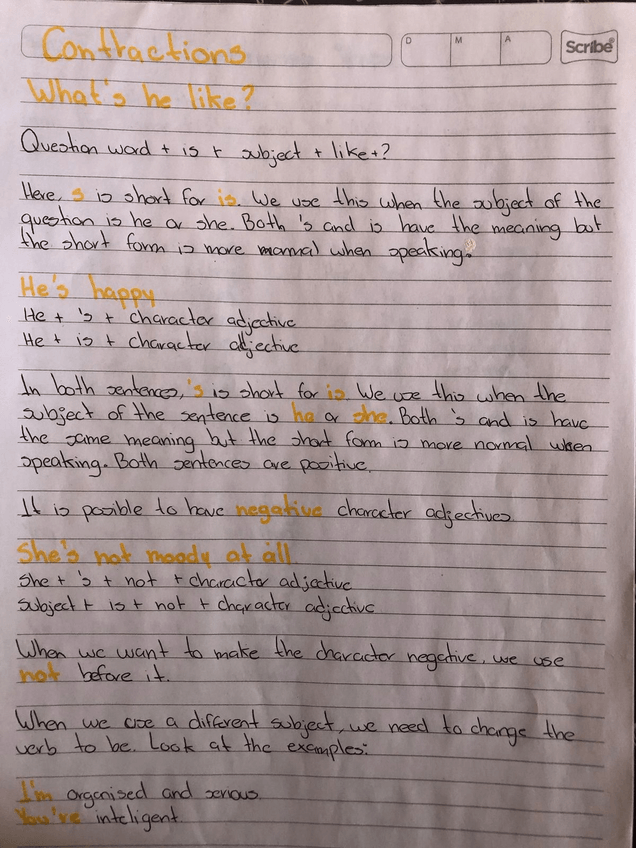 Contractions
D M A
Scribe®
What's he like?
Question word + is + subject + like+?
Here, s is short for is. We use this when the subject of the
question is he or she. Both 's and is have the meaning but
the short form is more mormal when speaking.
He's happy
He + 's + character adjective
He + is + character adjective
In both sentences, 's is short for is. We use this when the
subject of the sentence is he or she. Both 's and is have
the same meaning but the short form is more normal when
speaking. Both sentences are positive.
It is posible to have negative character adjectives
She's not moody at all
She + 's + not + character adjective
Subject + is + not + character adjective
When we want to make the character negative, we use
not before it.
When we use a different subject, we need to change the
verb to be. Look at the examples:
I'm organised and serious.
You're inteligent.